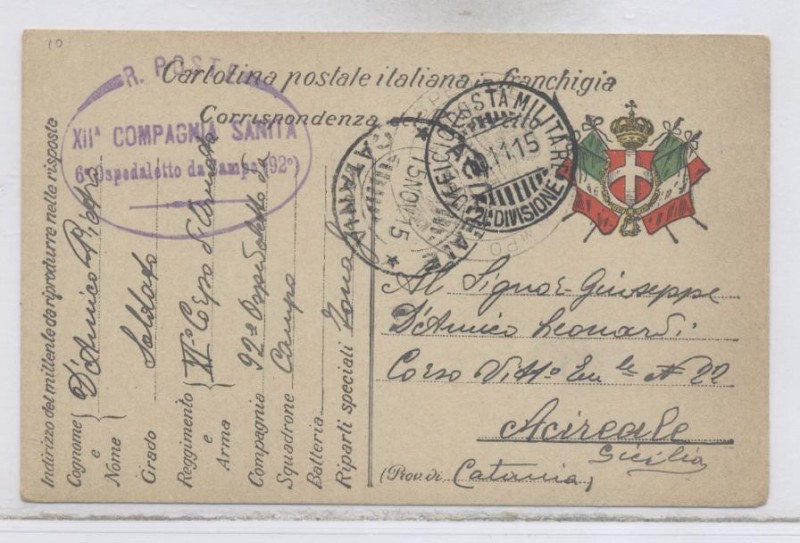 10
R. POSTE
XIIᴬ COMPAGNIA SANITÀ
6° Ospedaletto da Campo (92°)
Cartolina postale italiana in franchigia
Corrispondenza
UFFICIO POSTA MILITARE
11.15
DIVISIONE
ACIREALE
CATANIA
15 NOV 15
Al Signor Giuseppe
D'Amico Leonardi
Corso Vittº Emle N 22
Acireale
Sicilia
(Prov. di Catania)
Indirizzo del mittente da riprodurre nelle risposte
Cognome e Nome D'Amico Pietro
Grado Soldato
Reggimento e Arma XIº Corpo d'Armata
Compagnia 92ª Ospedaletto da
Squadrone Campo
Batteria
Riparti speciali Zona